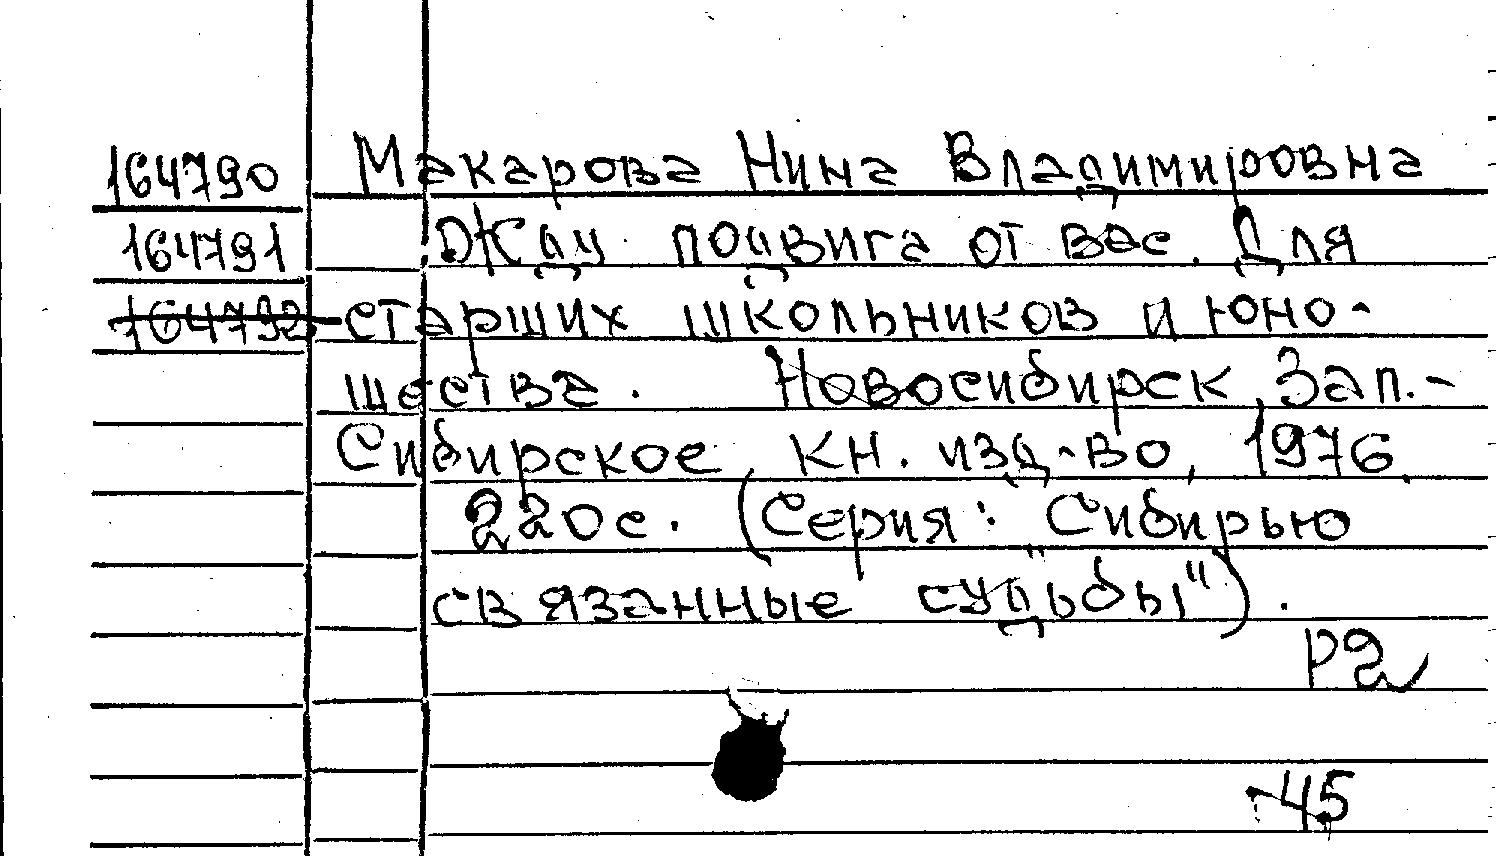 164790 Макарова Нина Владимировна
164791 Жду подвига от вас. Для
164792 старших школьников и юно-
шества. Новосибирск, Зап.-
Сибирское кн. изд-во, 1976.
220с. (Серия: "Сибирью
связанные судьбы").
Р2
45